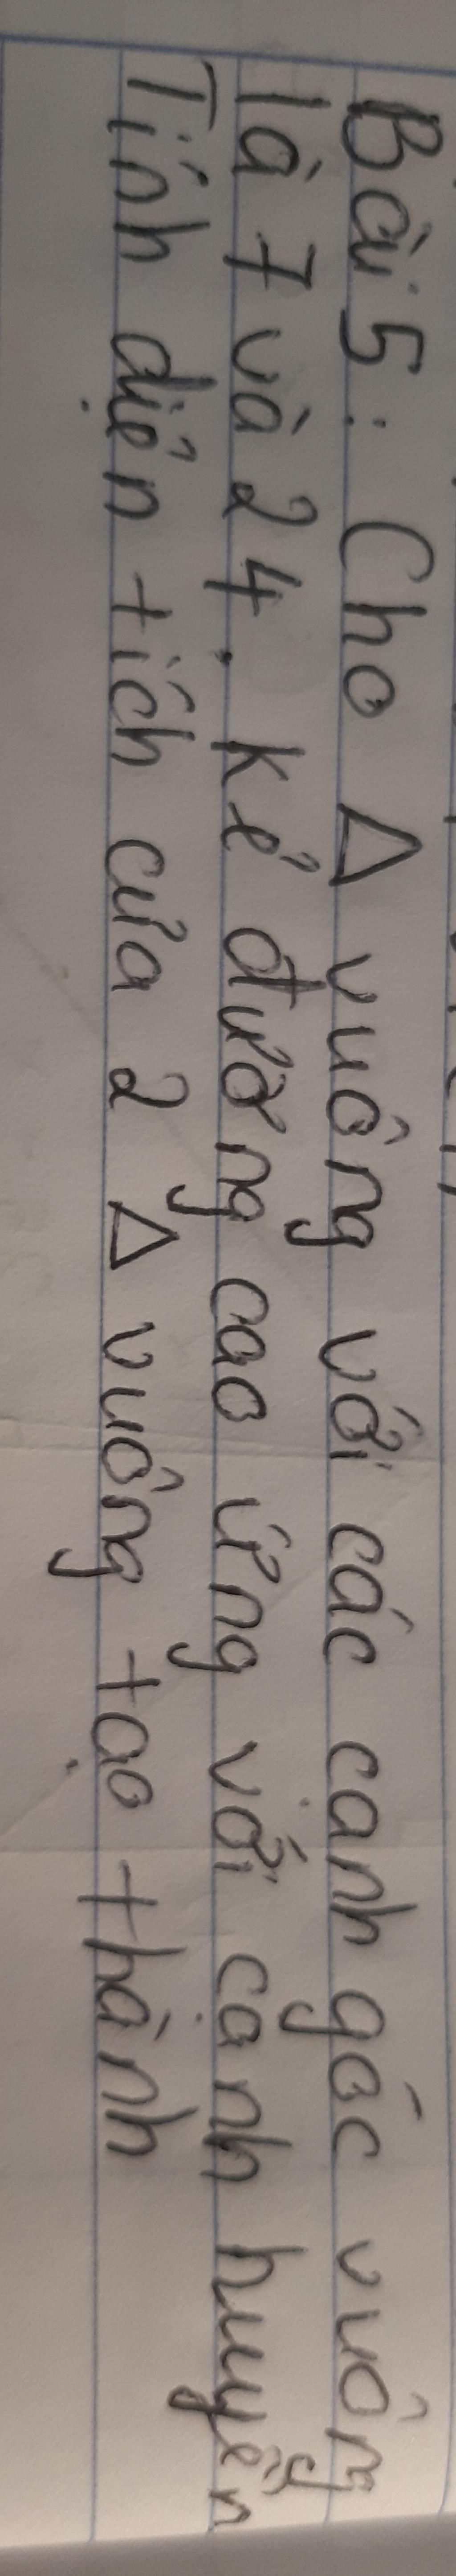 Bài 5: Cho Δ vuông với các cạnh góc vuông
là 7 và 24. kẻ đường cao ứng với cạnh huyền
Tính diện tích của 2 Δ vuông tạo thành